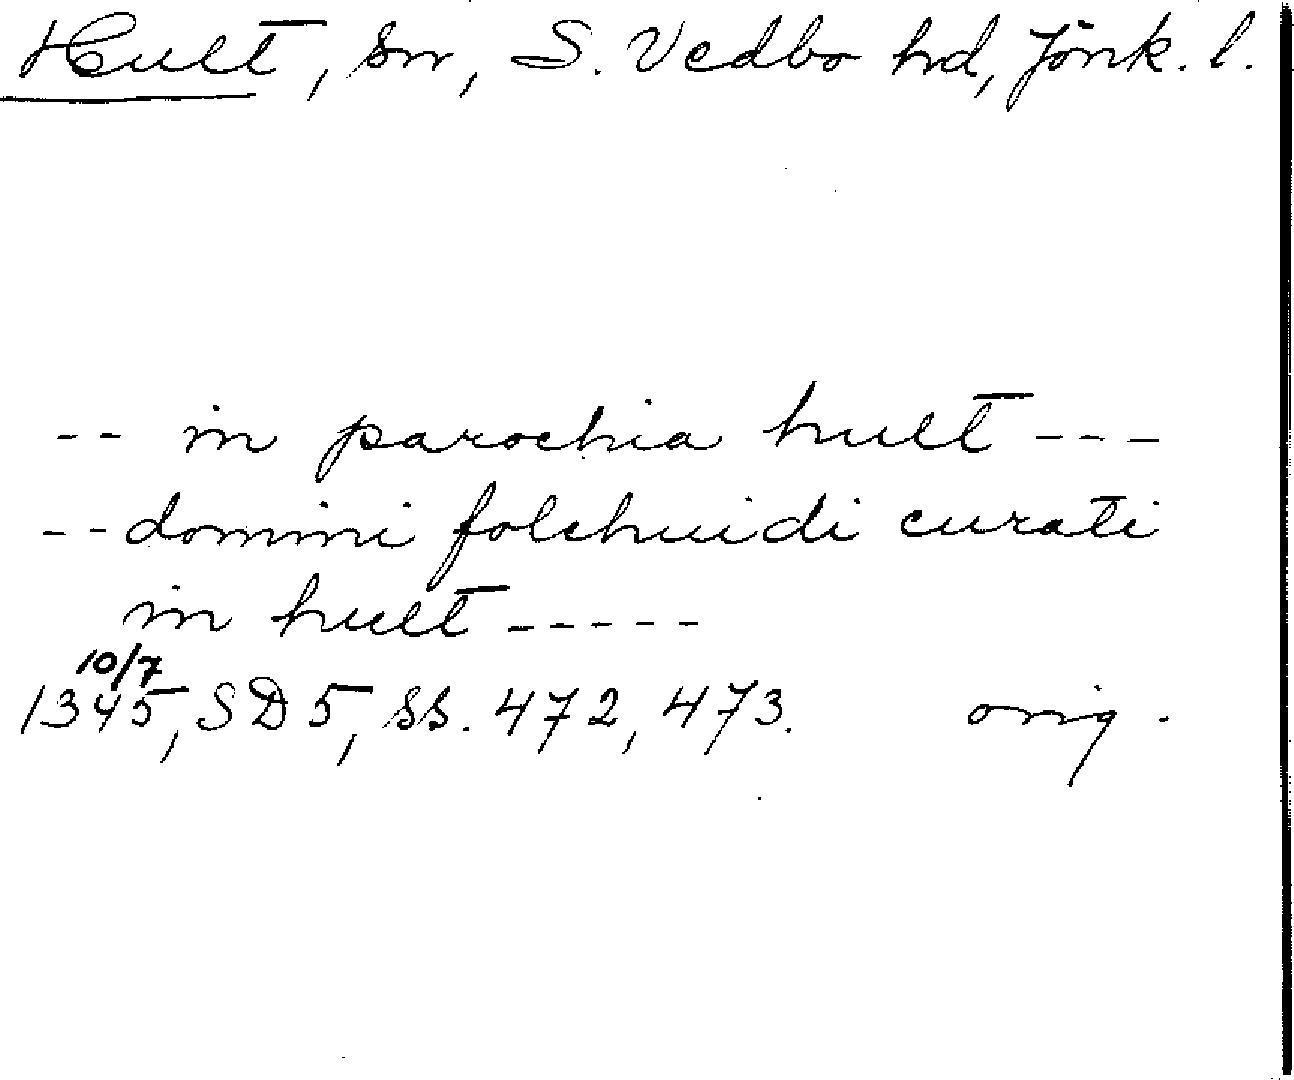 Hult, sn, S. Vedbo hd, Jönk. l.
-- in parochia hult ---
-- domini folchuidi curati
in hult -----
10/7
1345, SD 5, ss. 472, 473. orig.